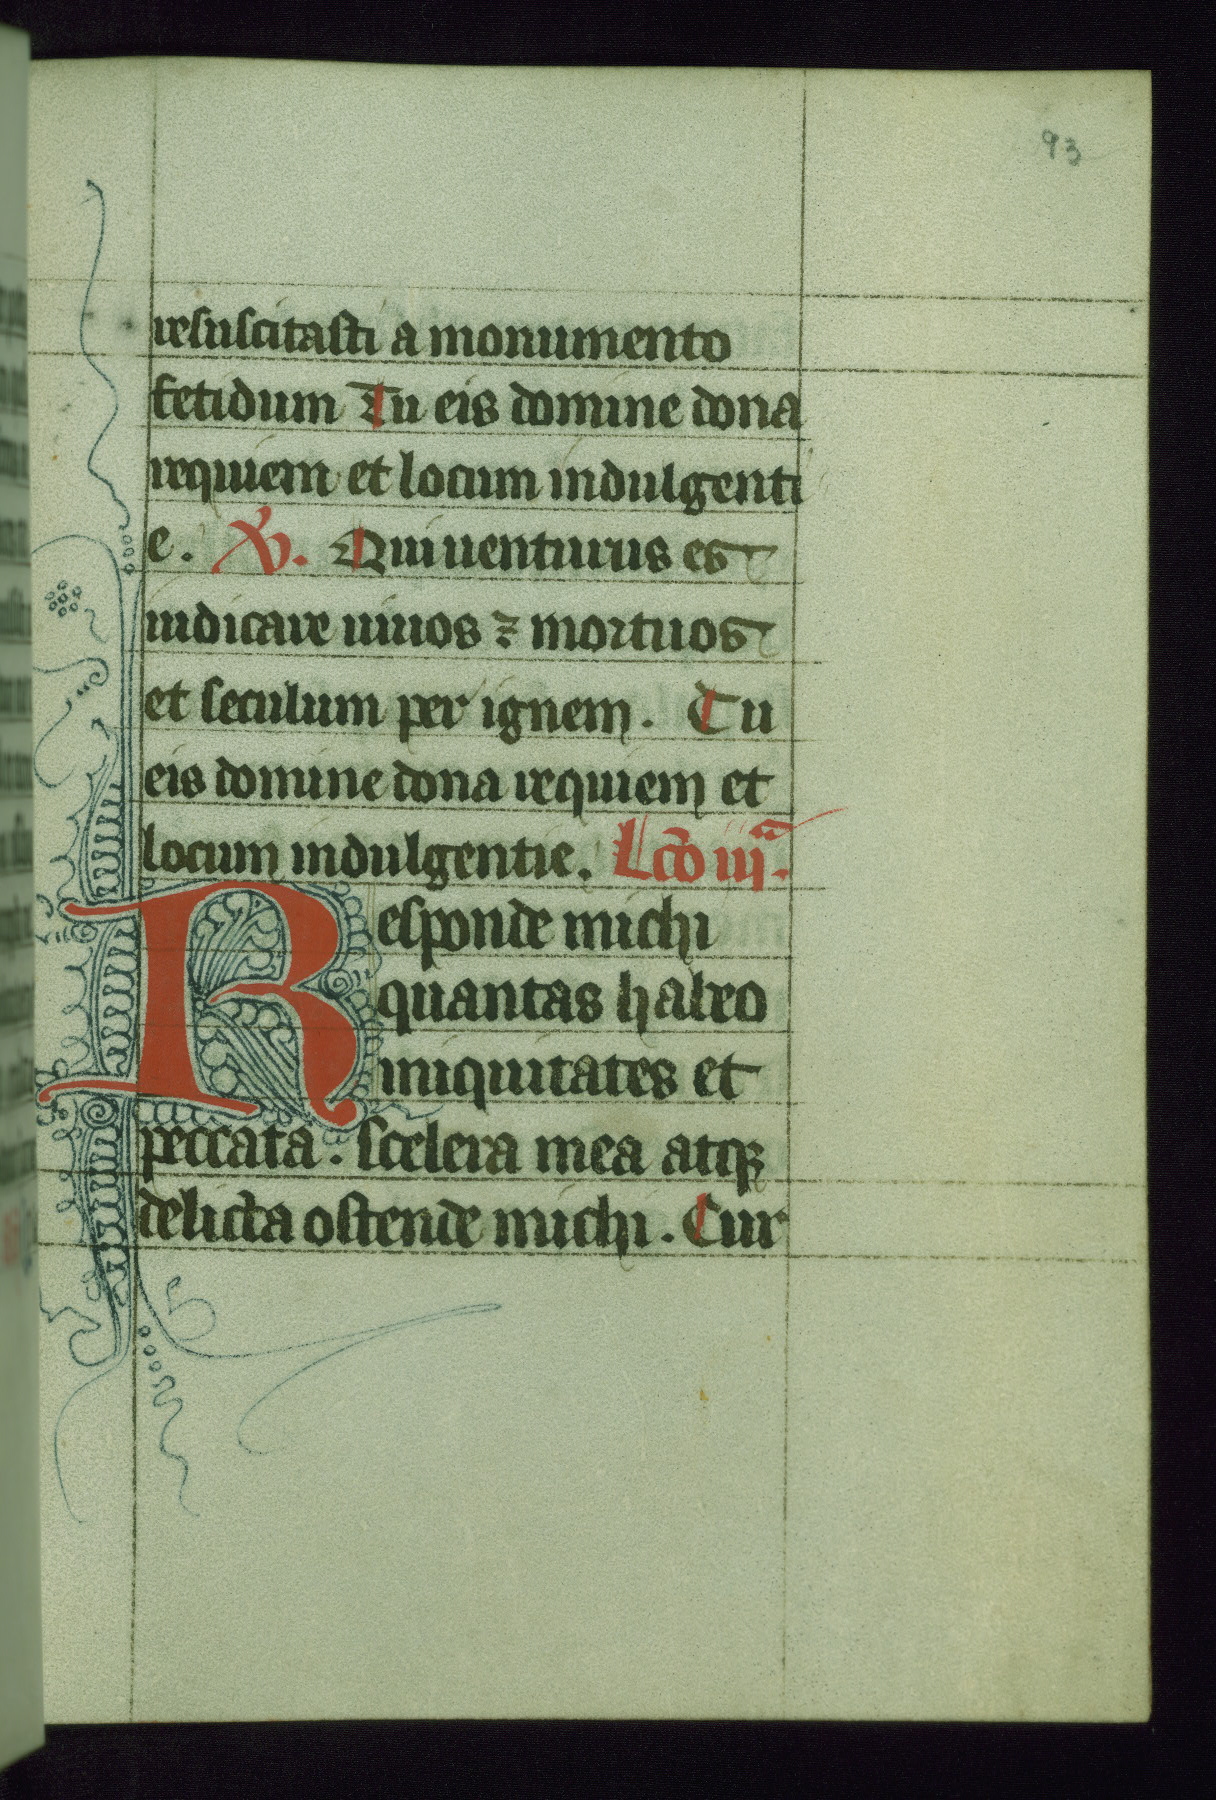 93
resuscitasti a monumento
fetidum Tu eis domine dona
requiem et locum indulgenti
e. V. Qui uenturus es
iudicare uiuos ⁊ mortuos
et seculum per ignem. Tu
eis domine dona requiem et
locum indulgentie. Lc̄o iij̄.
Responde michi
quantas habeo
iniquitates et
peccata. scelera mea atqꝫ
delicta ostende michi. Cur